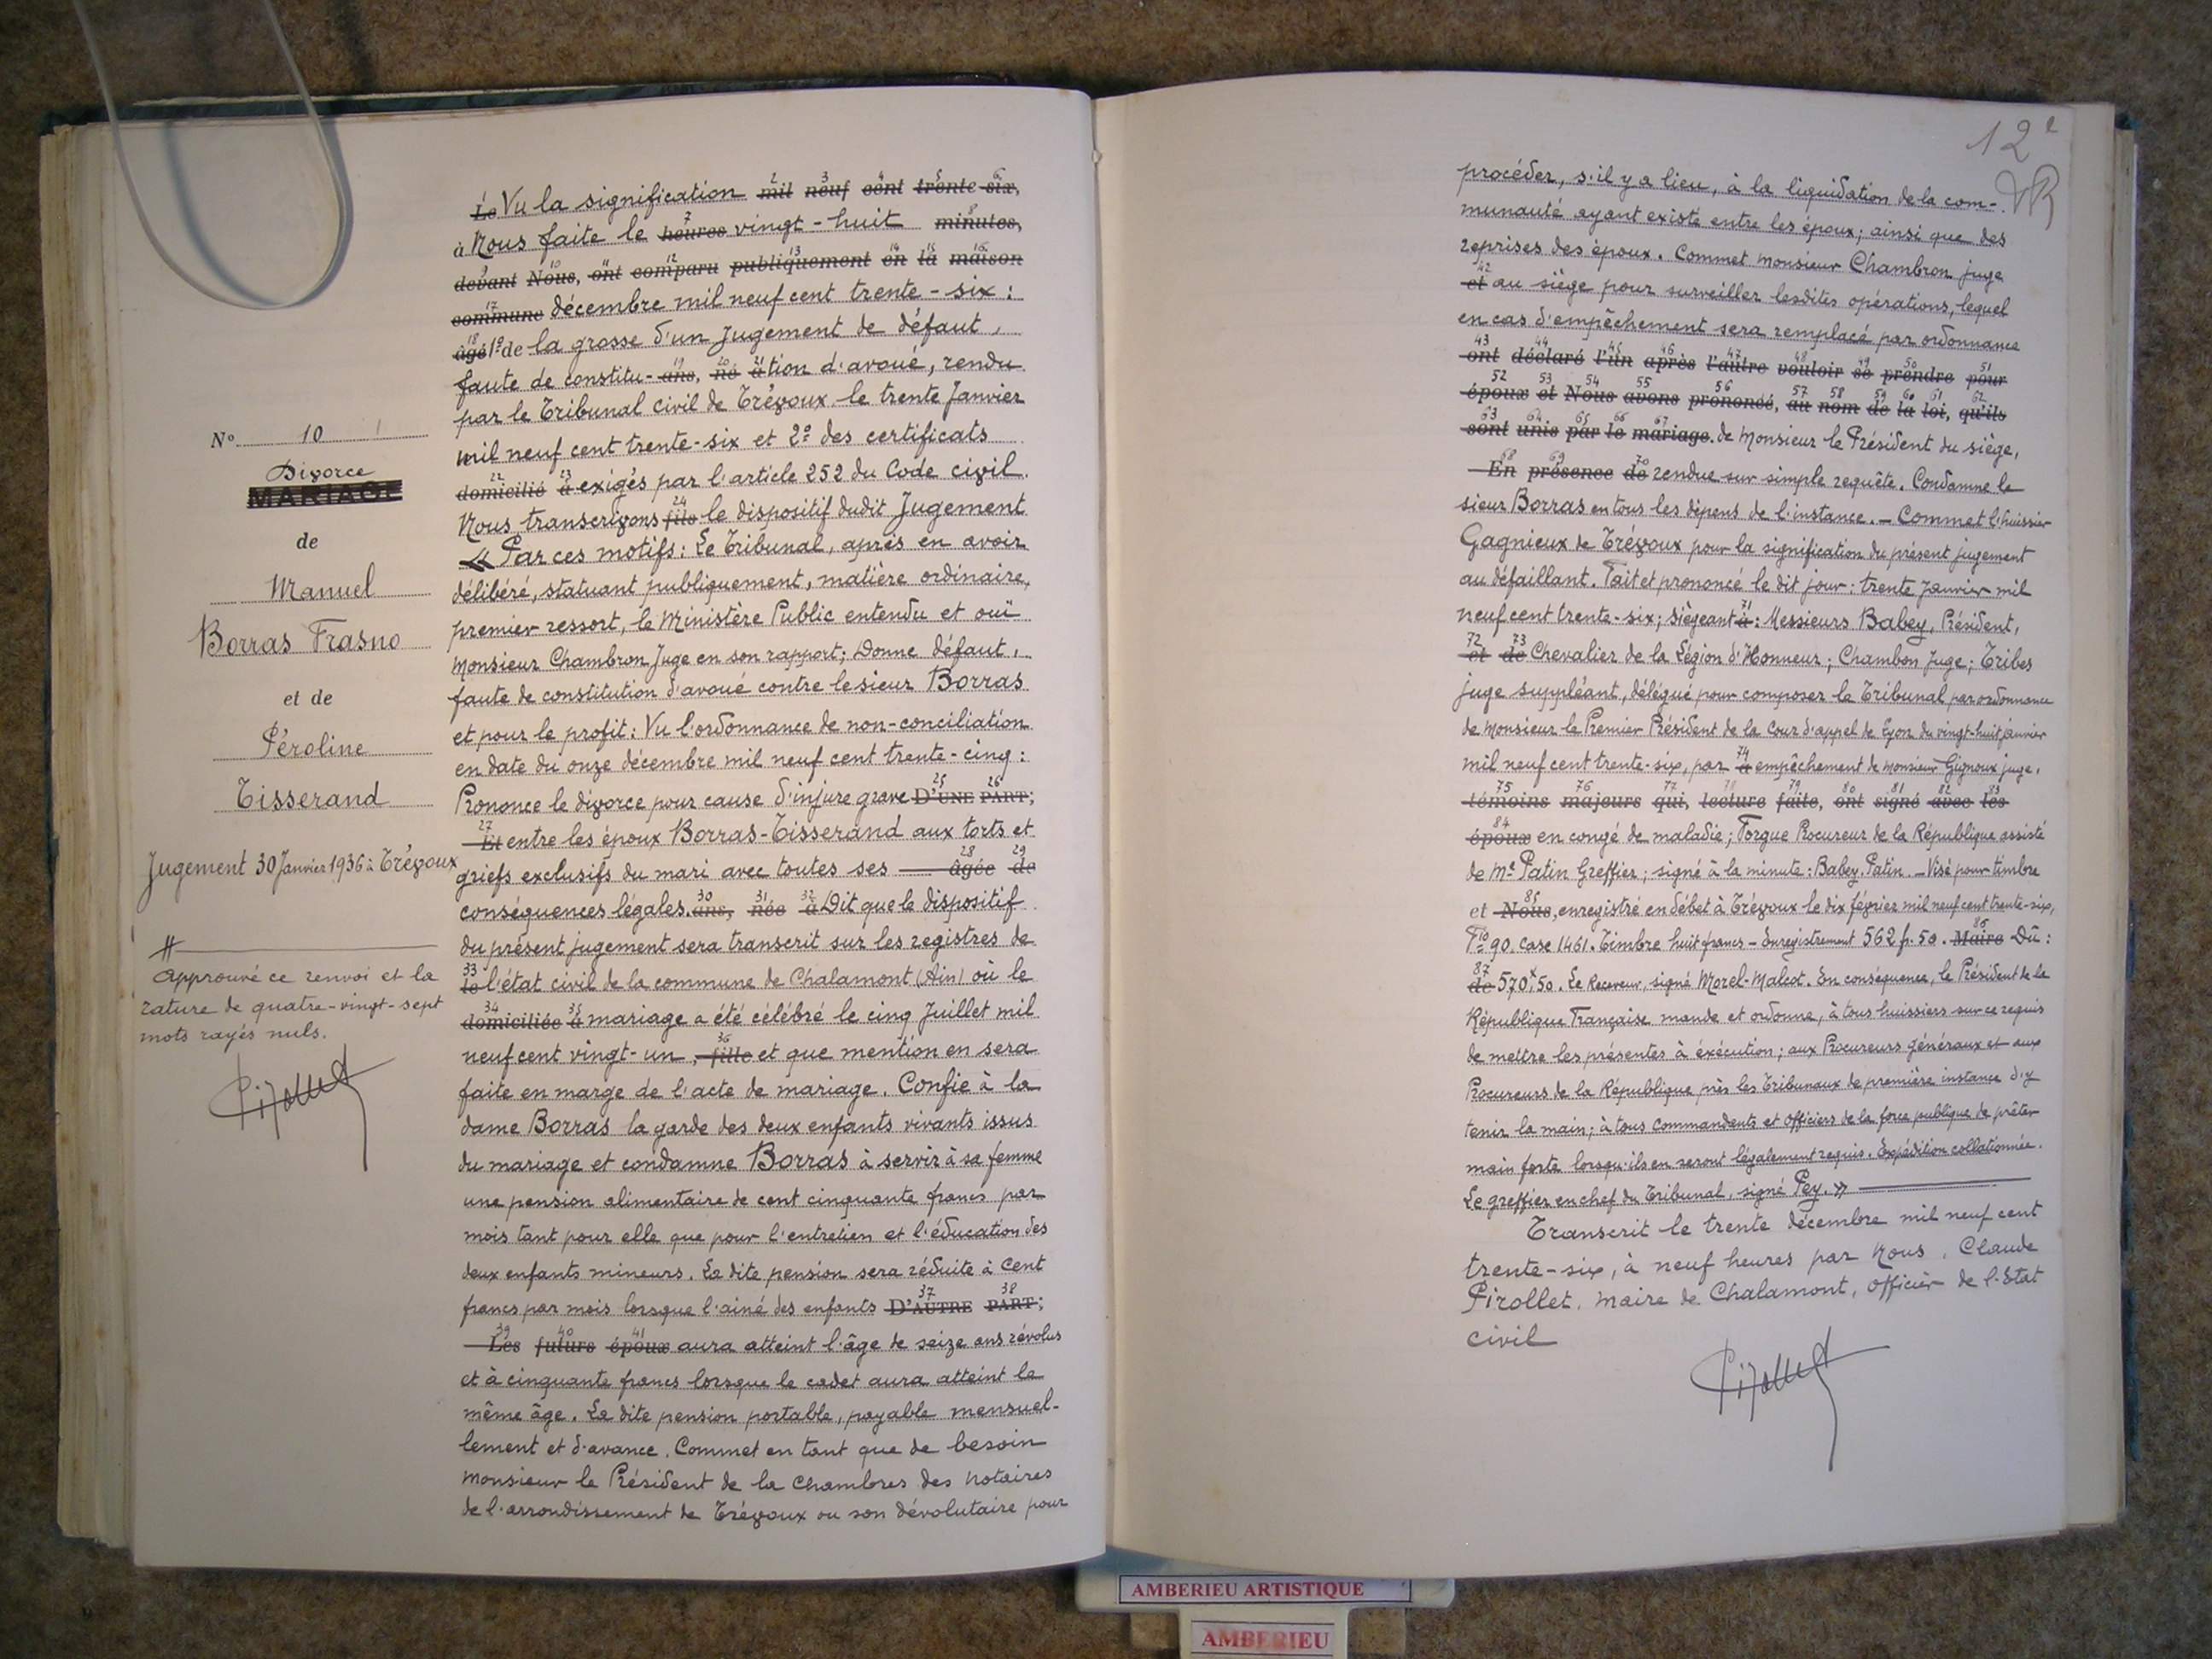 N° 10
Divorce
MARIAGE
de
Manuel
Borras Frasno
et de
Péroline
Tisserand
Jugement 30 Janvier 1936 à Trévoux
Approuvé ce renvoi et la
rature de quatre-vingt-sept
mots rayés nuls.
Pirollet
Le Vu la signification mil neuf cent trente-six,
à Nous faite le heures vingt-huit minutes,
devant Nous, ont comparu publiquement en la maison
commune décembre mil neuf cent trente-six :
âgé 1° de la grosse d'un Jugement de défaut,
faute de constitu- ans, né à tion d'avoué, rendu
par le Tribunal civil de Trévoux le trente Janvier
mil neuf cent trente-six et 2° des certificats
domicilié à exigés par l'article 252 du Code civil.
Nous transcrivons fils le dispositif dudit Jugement
« Par ces motifs : Le Tribunal, après en avoir
délibéré, statuant publiquement, matière ordinaire,
premier ressort, le Ministère Public entendu et ouï
Monsieur Chambron Juge en son rapport ; Donne défaut,
faute de constitution d'avoué contre le sieur Borras
et pour le profit : Vu l'ordonnance de non-conciliation
en date du onze décembre mil neuf cent trente-cinq :
Prononce le divorce pour cause d'injure grave D'UNE PART ;
Et entre les époux Borras-Tisserand aux torts et
griefs exclusifs du mari avec toutes ses âgée de
conséquences légales. ans, née à Dit que le dispositif
du présent jugement sera transcrit sur les registres de
le l'état civil de la commune de Chalamont (Ain) où le
domiciliée à mariage a été célébré le cinq Juillet mil
neuf cent vingt-un, fille et que mention en sera
faite en marge de l'acte de mariage. Confie à la
dame Borras la garde des deux enfants vivants issus
du mariage et condamne Borras à servir à sa femme
une pension alimentaire de cent cinquante francs par
mois tant pour elle que pour l'entretien et l'éducation des
deux enfants mineurs. La dite pension sera réduite à cent
francs par mois lorsque l'ainé des enfants D'AUTRE PART ;
Les futurs époux aura atteint l'âge de seize ans révolus
et à cinquante francs lorsque le cadet aura atteint le
même âge. La dite pension portable, payable mensuel-
lement et d'avance. Commet en tant que de besoin
Monsieur le Président de la Chambres des Notaires
de l'arrondissement de Trévoux ou son dévolutaire pour
12e
procéder, s'il y a lieu, à la liquidation de la com-
munauté ayant existé entre les époux ; ainsi que des
reprises des époux. Commet Monsieur Chambron juge
et au siège pour surveiller lesdites opérations, lequel
en cas d'empêchement sera remplacé par ordonnance
ont déclaré l'un après l'autre vouloir se prendre pour
époux et Nous avons prononcé, au nom de la loi, qu'ils
sont unis par le mariage. de Monsieur le Président du siège,
En présence de rendue sur simple requête. Condamne le
sieur Borras en tous les dépens de l'instance. — Commet l'huissier
Gagnieux de Trévoux pour la signification du présent jugement
au défaillant. Fait et prononcé le dit jour : trente Janvier mil
neuf cent trente-six ; siégeant à : Messieurs Babey, Président,
et de Chevalier de la Légion d'Honneur ; Chambon Juge ; Tribes
juge suppléant, délégué pour composer le Tribunal par ordonnance
de Monsieur le Premier Président de la Cour d'appel de Lyon du vingt-huit janvier
mil neuf cent trente-six, par à empêchement de Monsieur Gignoux juge.
témoins majeurs qui, lecture faite, ont signé avec les
époux en congé de maladie ; Torgue Procureur de la République assisté
de Me Patin Greffier ; signé à la minute : Babey. Patin. — Visé pour timbre
et Nous, enregistré en débet à Trévoux le dix février mil neuf cent trente-six,
F° 90. Case 1461. Timbre huit francs — Enregistrement 562 f. 50. Maire Dû :
de 570f. 50. Le Receveur, signé Morel-Malcot. En conséquence, le Président de la
République Française mande et ordonne, à tous huissiers sur ce requis
de mettre les présentes à éxécution ; aux Procureurs généraux et aux
Procureurs de la République près les Tribunaux de première instance d'y
tenir la main ; à tous commandants et officiers de la force publique de prêter
main forte lorsqu'ils en seront légalement requis. Expédition collationnée.
Le greffier en chef du Tribunal, signé Pey. »
Transcrit le trente décembre mil neuf cent
trente-six, à neuf heures par Nous, Claude
Pirollet, Maire de Chalamont, officier de l'Etat
civil
Pirollet
AMBERIEU ARTISTIQUE
AMBERIEU